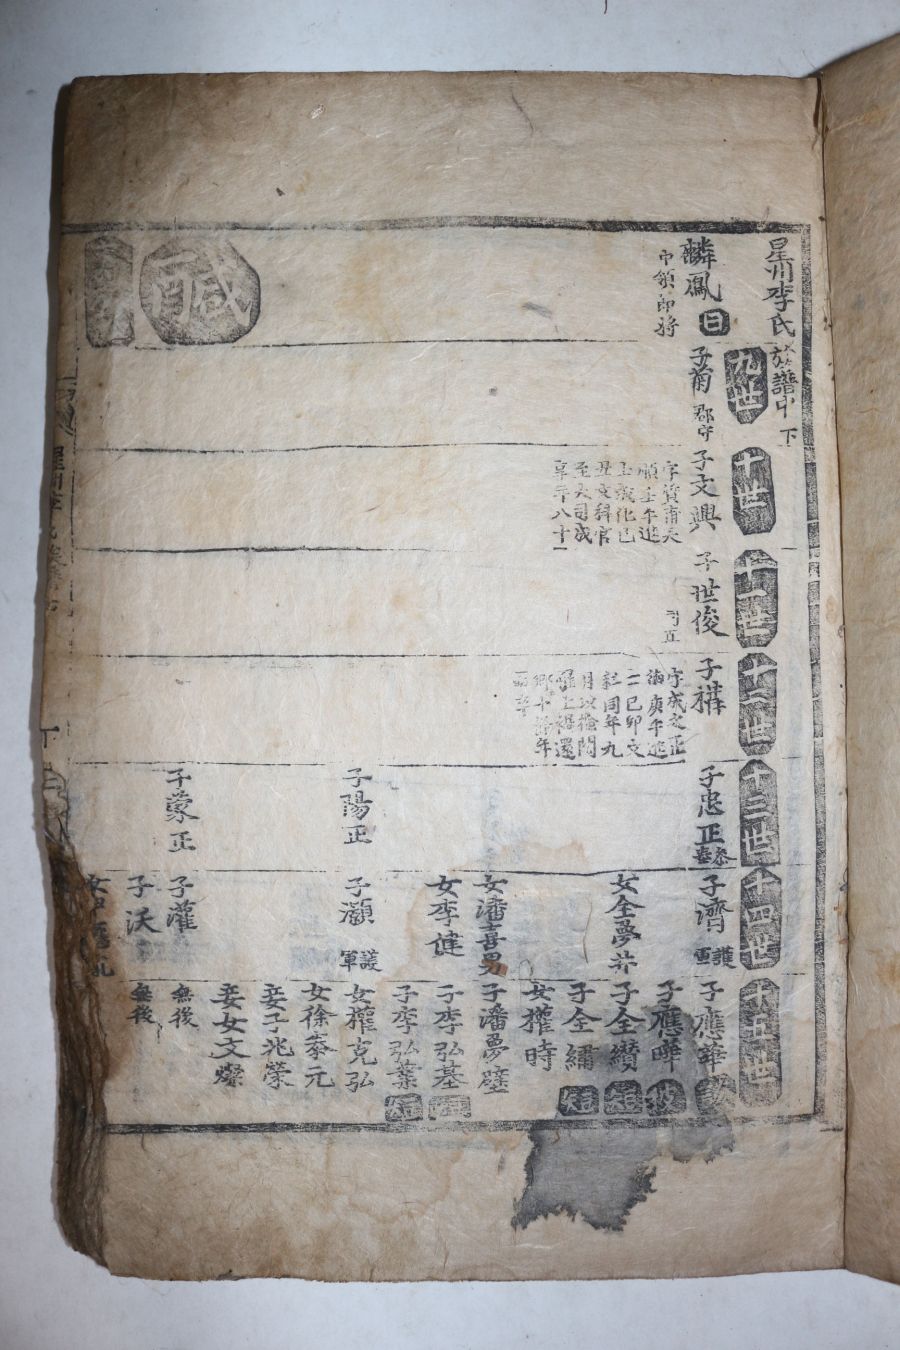 星州李氏族譜中 下
麟鳳
中領郎將
九世
子蒨
郡守
十世
子文興
字質甫天
順壬午進
士成化己
丑文科官
至大司成
享年八十一
十一世
子世俊
司正
十二世
子構
字成之正
德庚午進
士己卯文
科同年九
月以檢閱
十三世
子忠正
子陽正
子蒙正
十四世
子濟
護軍
女全夢井
女潘喜男
女李健
子灝
護軍
子灌
子沃
十五世
子應華
子應曄
子全纘
子全繡
短
女權時
子潘夢壁
子李弘基
子李弘業
短
女權克弘
女徐泰元
妾子兆榮
妾女文燦
無後
無後